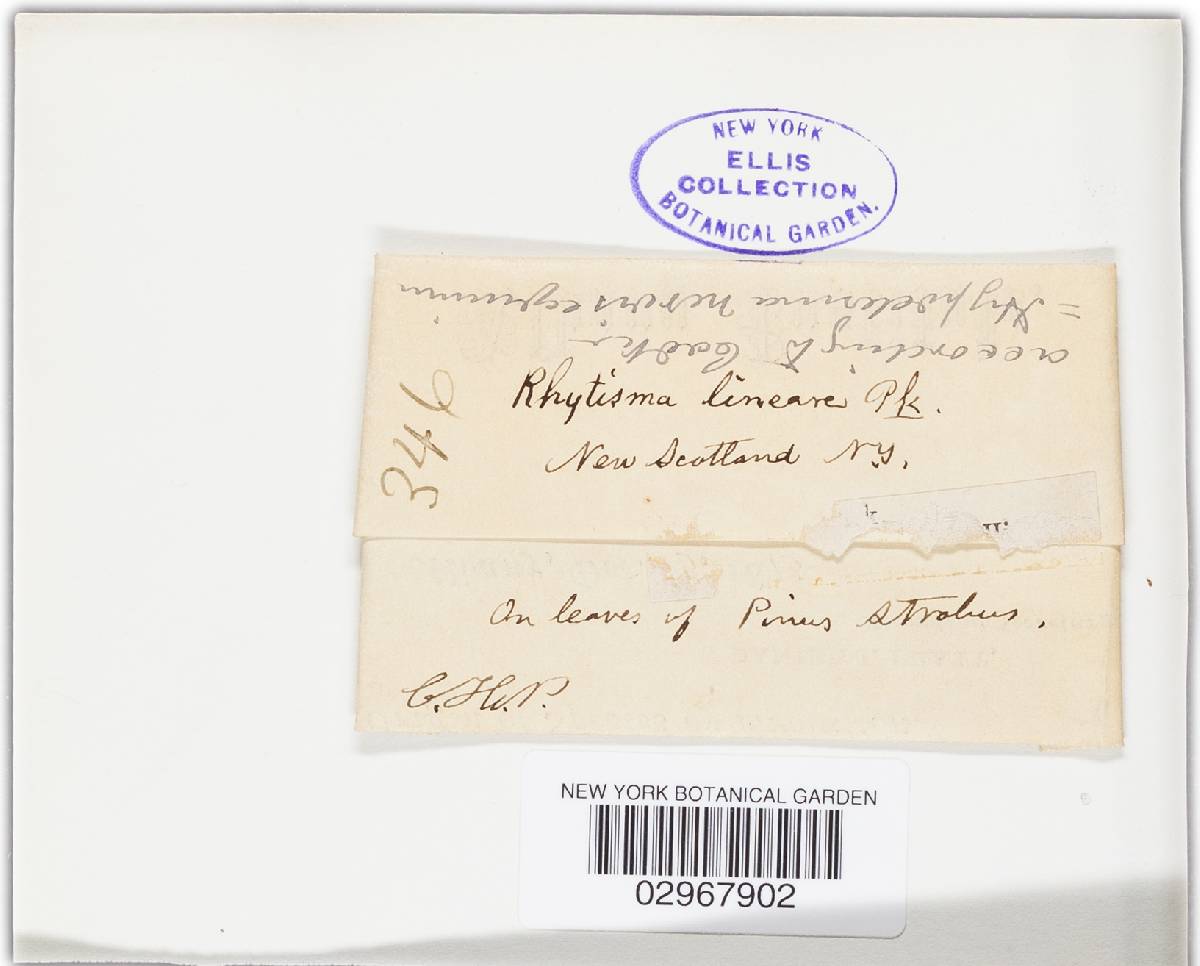 NEW YORK
ELLIS
COLLECTION
BOTANICAL GARDEN.
= Hypoderma nervisequium
according to
346
Rhytisma lineare Pk.
New Scotland N.Y.
On leaves of Pinus Strobus.
C.H.P.
NEW YORK BOTANICAL GARDEN
02967902